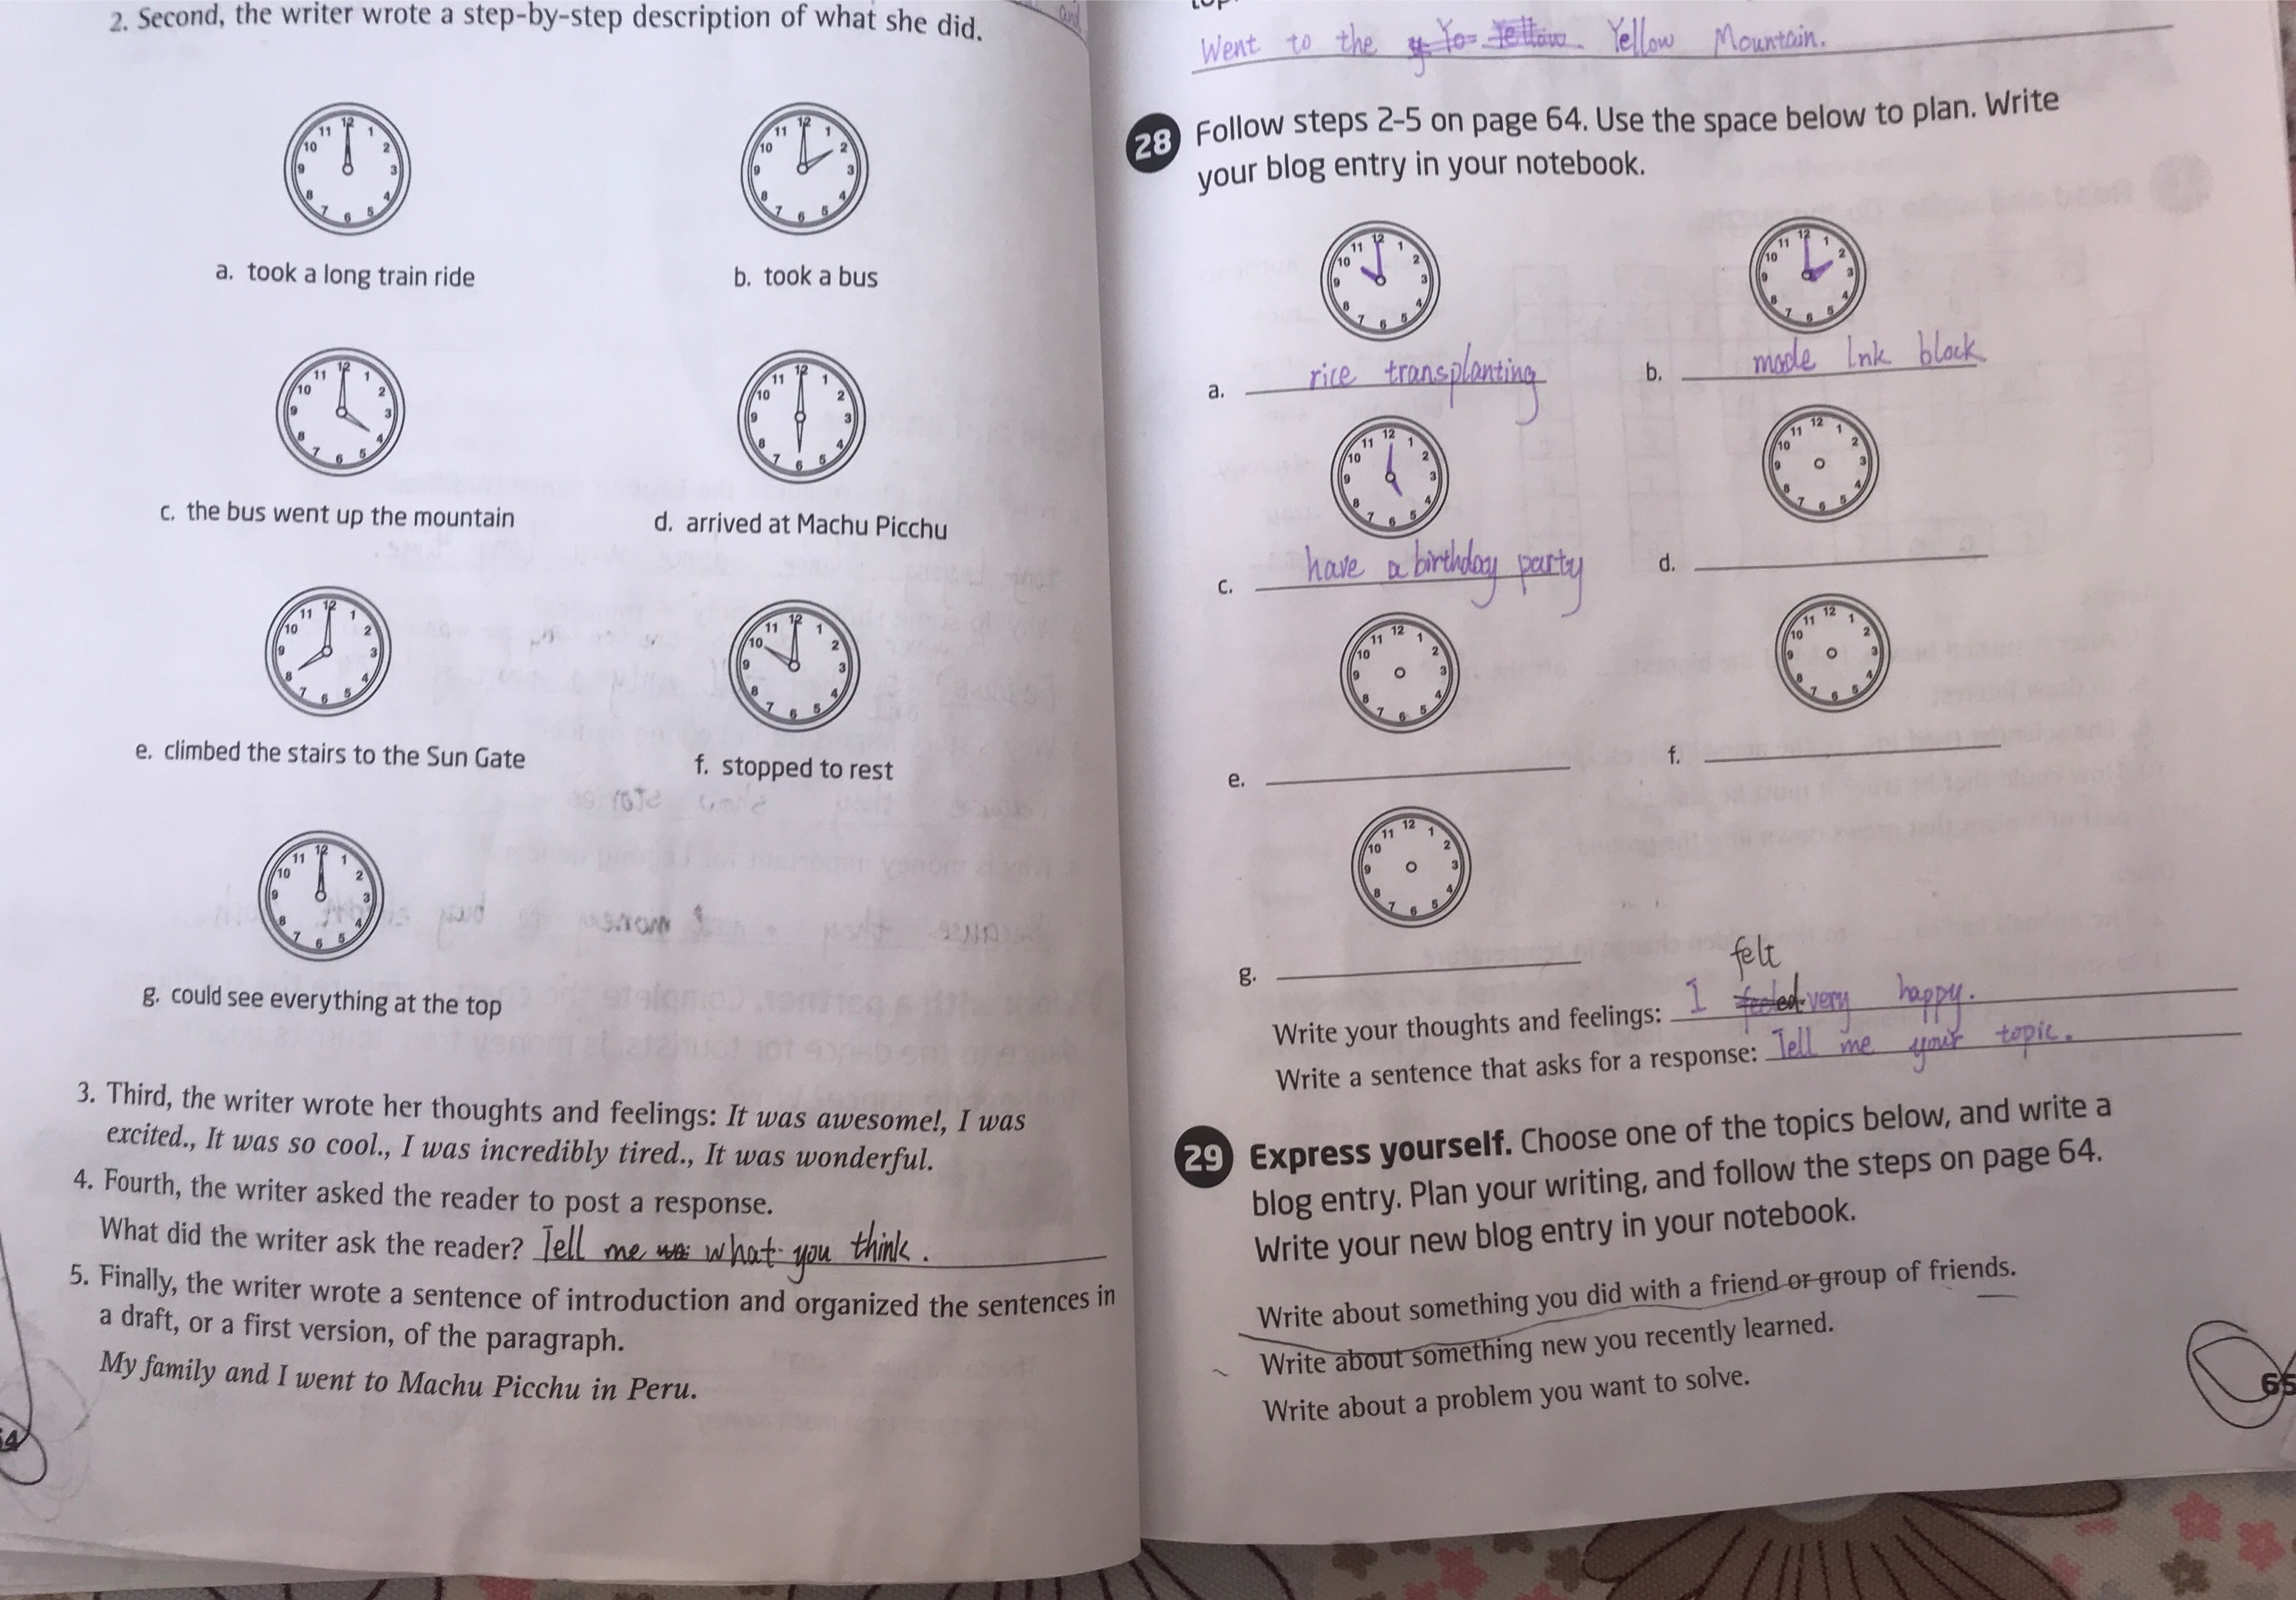 2. Second, the writer wrote a step-by-step description of what she did.
a. took a long train ride
b. took a bus
c. the bus went up the mountain
d. arrived at Machu Picchu
e. climbed the stairs to the Sun Gate
f. stopped to rest
g. could see everything at the top
3. Third, the writer wrote her thoughts and feelings: It was awesome!, I was
excited., It was so cool., I was incredibly tired., It was wonderful.
4. Fourth, the writer asked the reader to post a response.
What did the writer ask the reader? Tell me what you think.
5. Finally, the writer wrote a sentence of introduction and organized the sentences in
a draft, or a first version, of the paragraph.
My family and I went to Machu Picchu in Peru.
Went to the Yellow Mountain.
28 Follow steps 2-5 on page 64. Use the space below to plan. Write
your blog entry in your notebook.
a. rice transplanting
b. made Ink block
c. have a birthday party
d.
e.
f.
g.
felt
Write your thoughts and feelings: I very happy.
Write a sentence that asks for a response: Tell me your topic.
29 Express yourself. Choose one of the topics below, and write a
blog entry. Plan your writing, and follow the steps on page 64.
Write your new blog entry in your notebook.
Write about something you did with a friend or group of friends.
Write about something new you recently learned.
Write about a problem you want to solve.
65